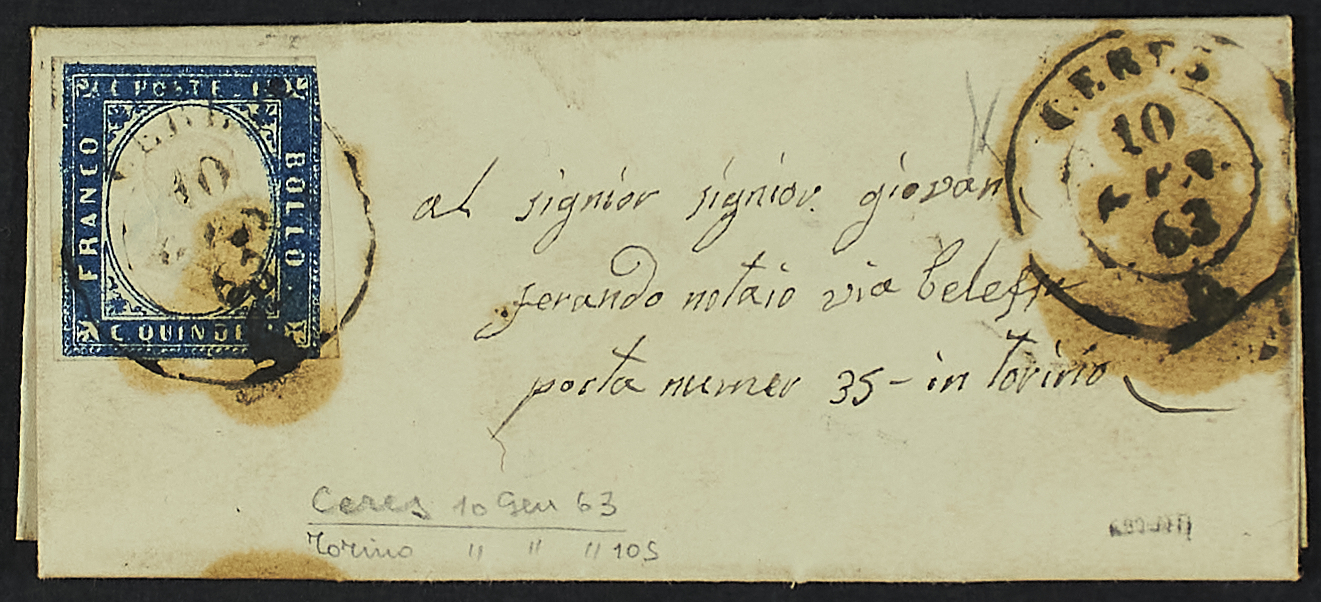 POSTE
FRANCO
BOLLO
C. QUINDI
10
63
CERES
10
63
al signior signior giovan
ferando notaio via
porta numer 35 - in torino
Ceres 10 Gen 63
Torino " " " 105